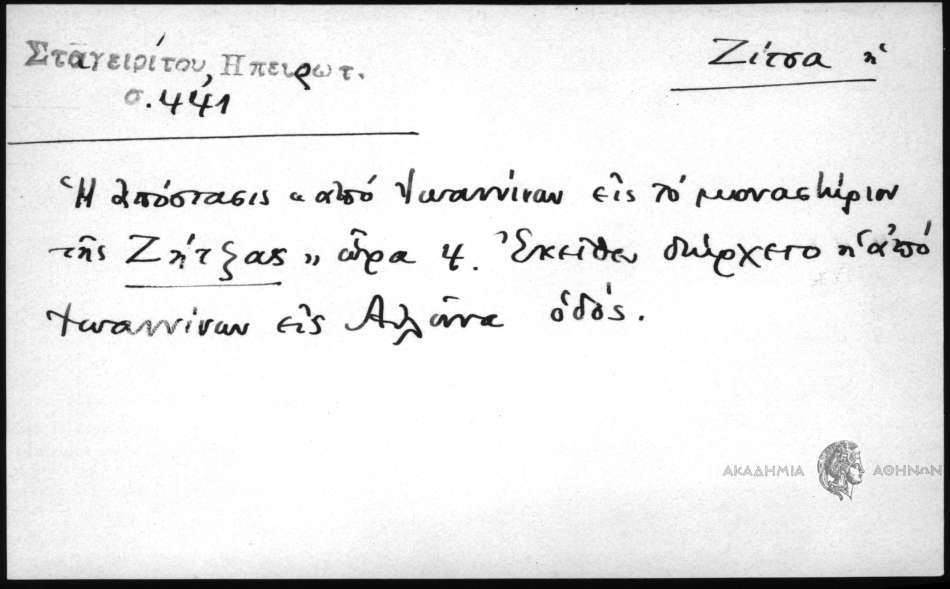 Σταγειρίτου, Ηπειρωτ.
σ. 441
Ζίτσα ἡ
Ἡ ἀπόστασις «ἀπό Ἰωαννίνων εἰς τό μοναστήριον
τῆς Ζήτζας» ὥρα 4. Ἐκεῖθεν διήρχετο ἡ ἀπό
Ἰωαννίνων εἰς Αὐλῶνα ὁδός.
ΑΚΑΔΗΜΙΑ ΑΘΗΝΩΝ